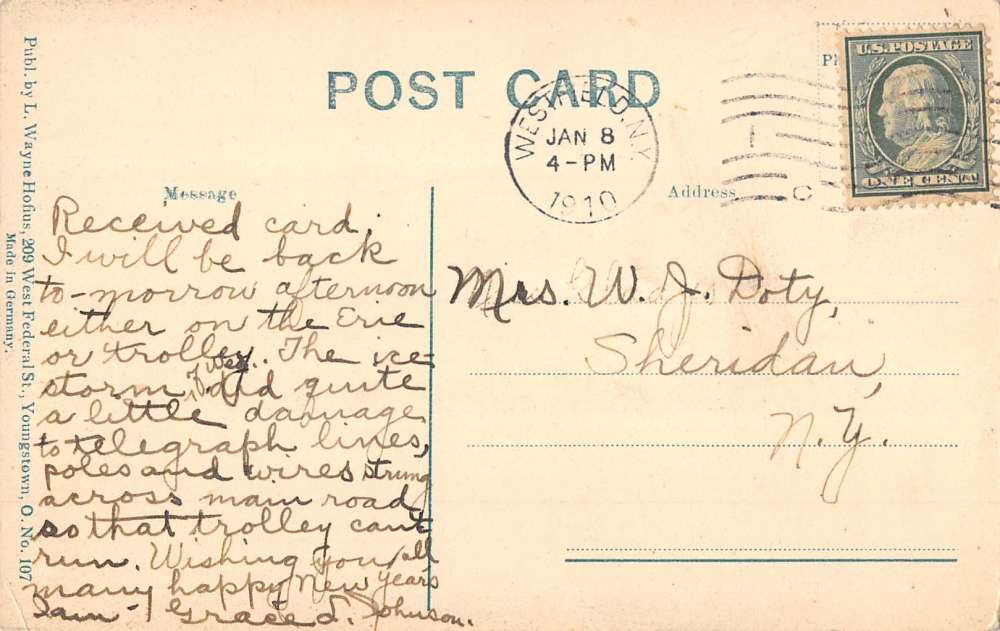 POST CARD
WESTFIELD, N.Y.
JAN 8
4-PM
1910
C
U.S. POSTAGE
ONE CENT
Pl
Message
Address
Received card.
I will be back
to-morrow afternoon
either on the Erie
or trolley. The ice
storm, Wed. did quite
a little damage
to telegraph lines,
poles and wires strung
across main road
so that trolley can't
run. Wishing you all
many happy New Years
I am - Grace L. Johnson.
Mrs. W. J. Doty,
Sheridan,
N.Y.
Publ. by L. Wayne Hofius, 209 West Federal St., Youngstown, O. No. 107
Made in Germany.